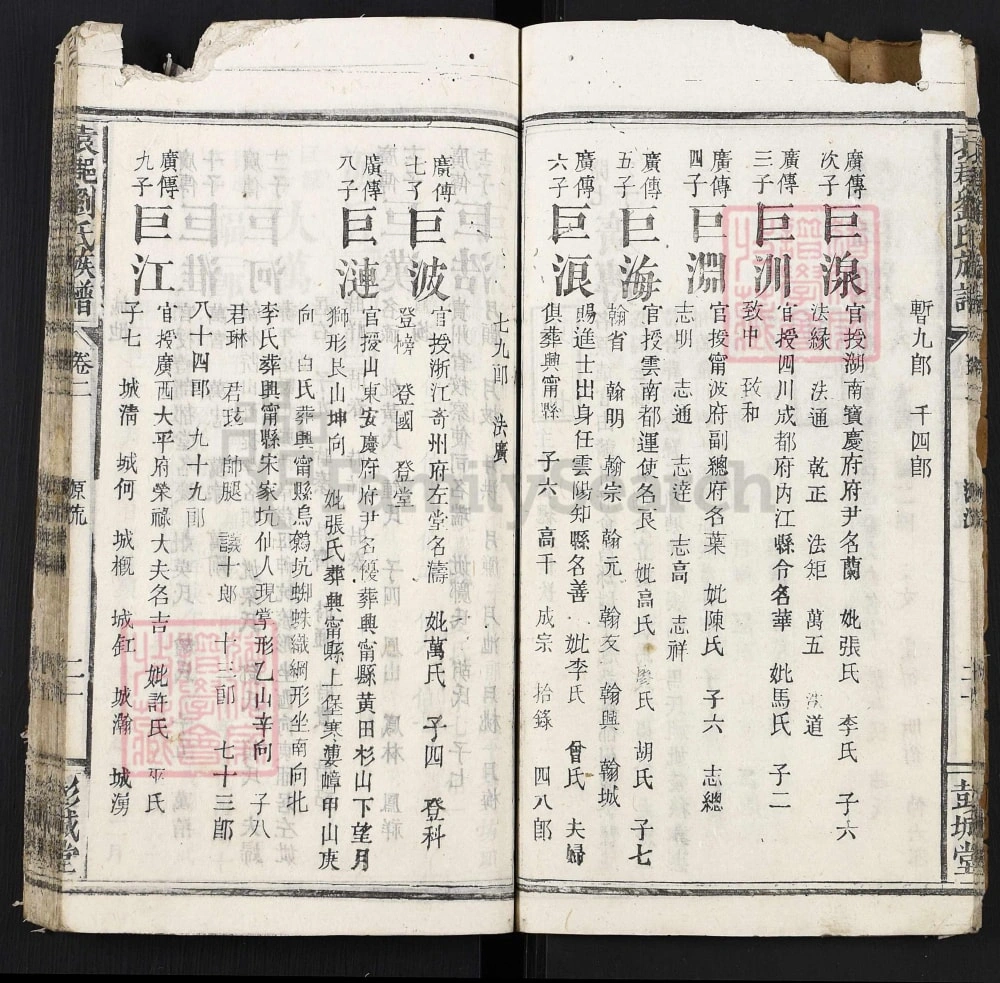 暫九郎 千四郎
廣傳次子 巨湶 官授湖南寶慶府府尹名蘭 妣張氏 李氏 子六
法緣 法通 乾正 法矩 萬五 法道
廣傳三子 巨洲 官授四川成都府内江縣令名華 妣馬氏 子二
致中 致和
廣傳四子 巨淵 官授甯波府副總府名葉 妣陳氏 子六 志總
志明 志通 志達 志高 志祥
廣傳五子 巨海 官授雲南都運使名良 妣高氏 廖氏 胡氏 子七
翰省 翰明 翰宗 翰元 翰文 翰興 翰城
廣傳六子 巨浪 賜進士出身任雲陽知縣名善 妣李氏 曾氏 夫婦
俱葬興甯縣 子六 高千 成宗 拾錄 四八郎
七九郎 法廣
廣傳七子 巨波 官授浙江寄州府左堂名濤 妣萬氏 子四 登科
登榜 登國 登堂
廣傳八子 巨漣 官授山東安慶府府尹名優葬興甯縣黃田杉山下望月
獅形艮山坤向 妣張氏葬興甯縣上保寒婁嶂甲山庚
向 白氏葬興甯縣烏鶉坑蜘蛛織綱形坐南向北
李氏葬興甯縣宋家坑仙人現掌形乙山辛向 子八
君琳 君珑 帥腿 議十郎 十三郎 七十三郎
八十四郎 九十九郎
廣傳九子 巨江 官授廣西大平府榮祿大夫名吉 妣許氏 巫氏
子七 城清 城何 城概 城釭 城瀚 城湧
袁郡劉氏族譜 卷二 源流 二十 彭城堂
FamilySearch